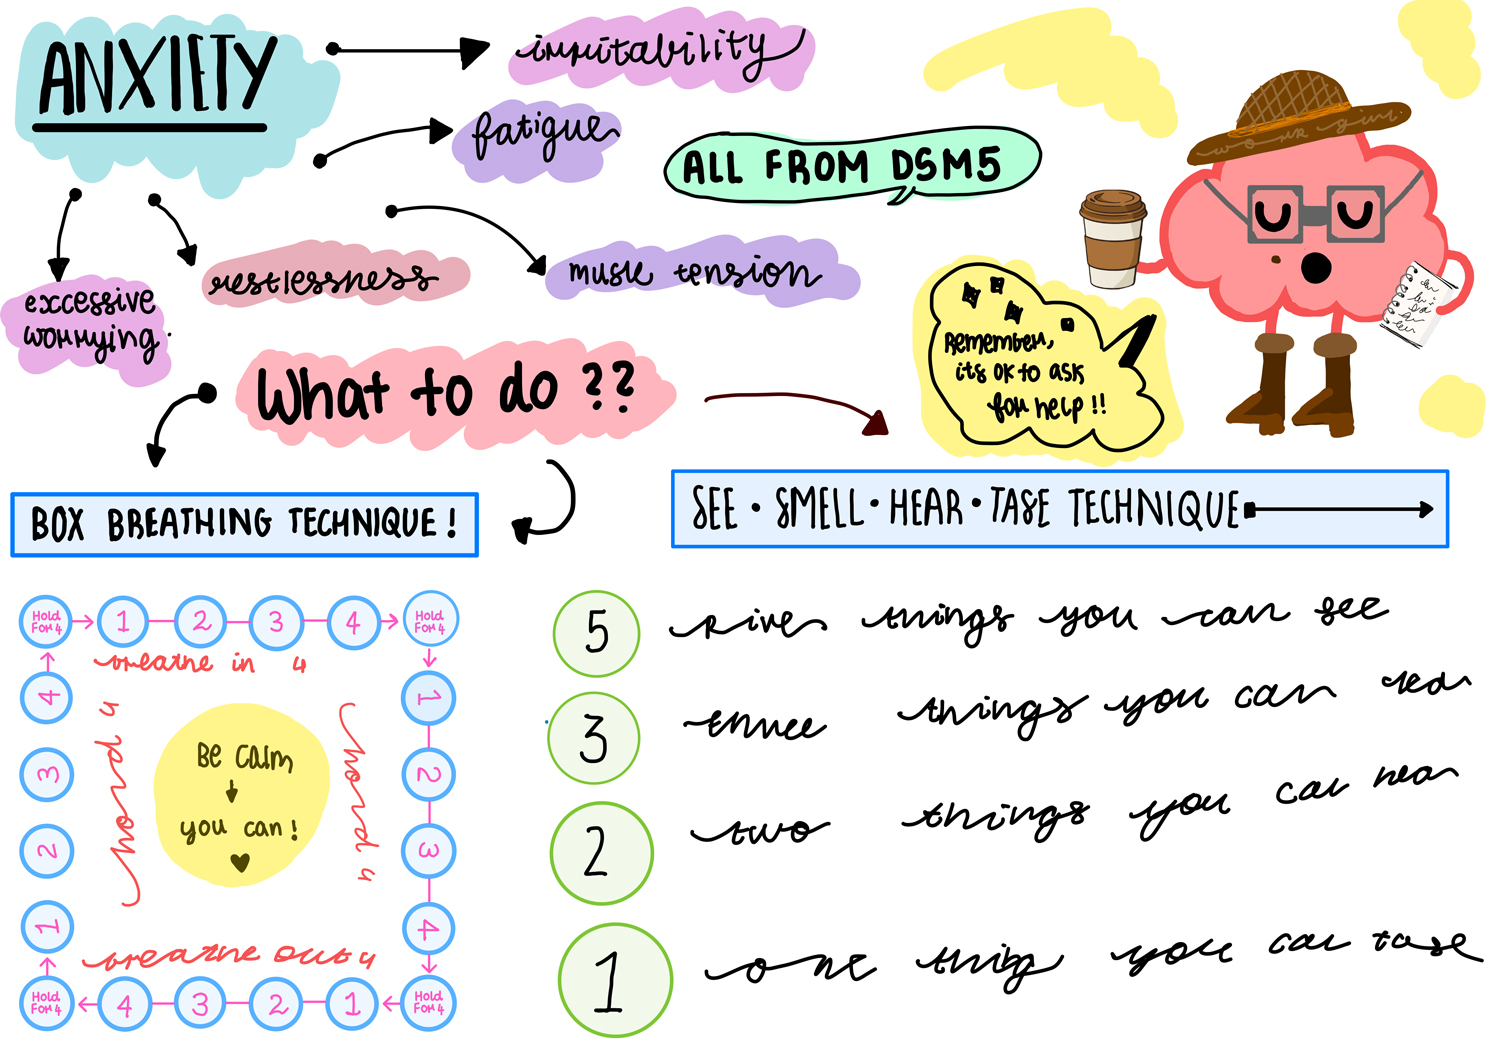 ANXIETY
irritability
fatigue
ALL FROM DSM5
excessive
worrying.
restlessness
muscle tension
Remember,
its OK to ask
for help !!
What to do ??
BOX BREATHING TECHNIQUE !
SEE • SMELL • HEAR • TASE TECHNIQUE
Hold
For 4
1
2
3
4
Hold
For 4
breathe in 4
4
3
2
1
hord 4
Be calm
you can !
hord 4
1
2
3
4
breathe out 4
Hold
For 4
4
3
2
1
Hold
For 4
5 five things you can see
3 three things you can
2 two things you can hear
1 one thing you can tase